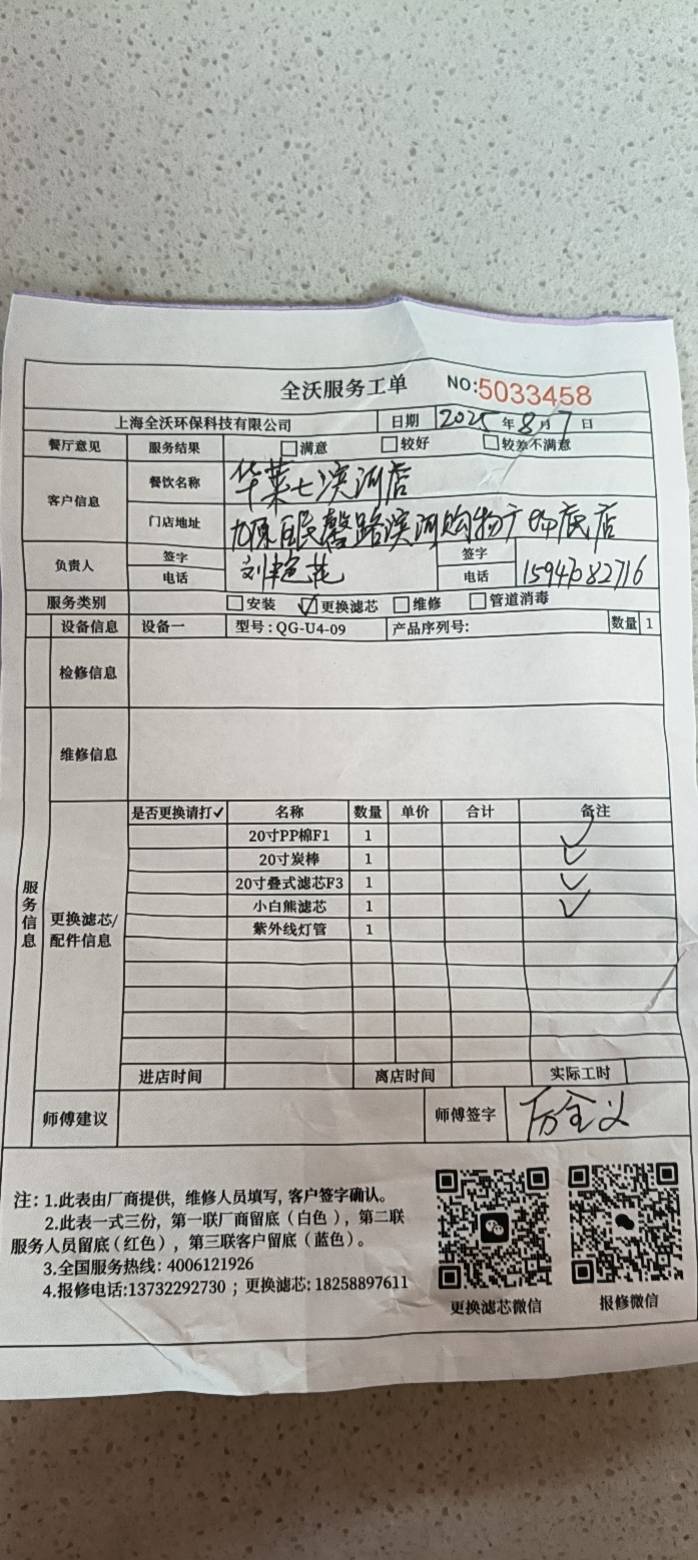 全沃服务工单 NO:5033458
上海全沃环保科技有限公司 日期 2025年8月7日
餐厅意见 服务结果 满意 较好 较差不满意
客户信息 餐饮名称 华莱士滨河店
门店地址 路滨河购物广场底店
负责人 签字 刘艳花 签字
电话 电话 15947082716
服务类别 安装 ✓更换滤芯 维修 管道消毒
设备信息 设备一 型号:QG-U4-09 产品序列号: 数量 1
检修信息
维修信息
服务信息
更换滤芯/配件信息
是否更换请打✓ 名称 数量 单价 合计 备注
20寸PP棉F1 1 ✓
20寸炭棒 1 ✓
20寸叠式滤芯F3 1 ✓
小白熊滤芯 1 ✓
紫外线灯管 1
进店时间 离店时间 实际工时
师傅建议 师傅签字
注: 1.此表由厂商提供, 维修人员填写, 客户签字确认。
2.此表一式三份, 第一联厂商留底 (白色), 第二联
服务人员留底 (红色), 第三联客户留底 (蓝色)。
3.全国服务热线: 4006121926
4.报修电话:13732292730 ; 更换滤芯: 18258897611
更换滤芯微信 报修微信